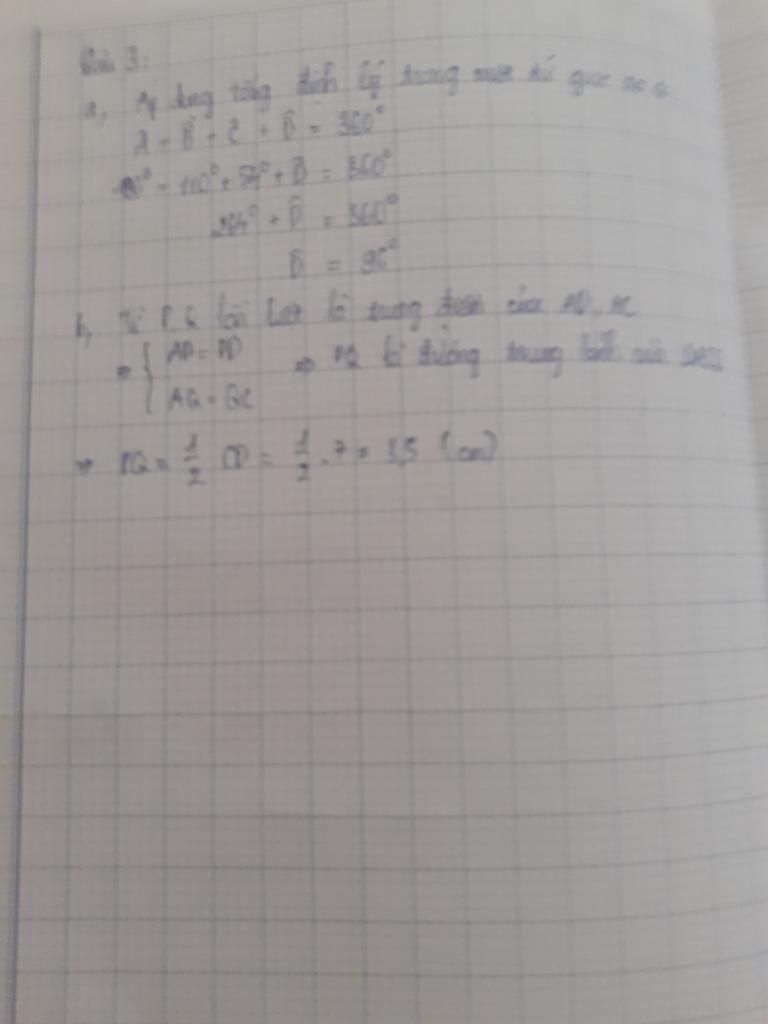 Bài 3:
a, Áp dụng tổng định lý trong một tứ giác ta có
Â + B̂ + Ĉ + D̂ = 360°
+ 110° + + D̂ = 360°
264° + D̂ = 360°
D̂ = 96°
b, Vì P, Q lần lượt là trung điểm của AD, AC
⇒ { AP = PD ⇒ PQ là đường trung bình của
AQ = QC
⇒ PQ = 1/2 CD = 1/2 . 7 = 3,5 (cm)